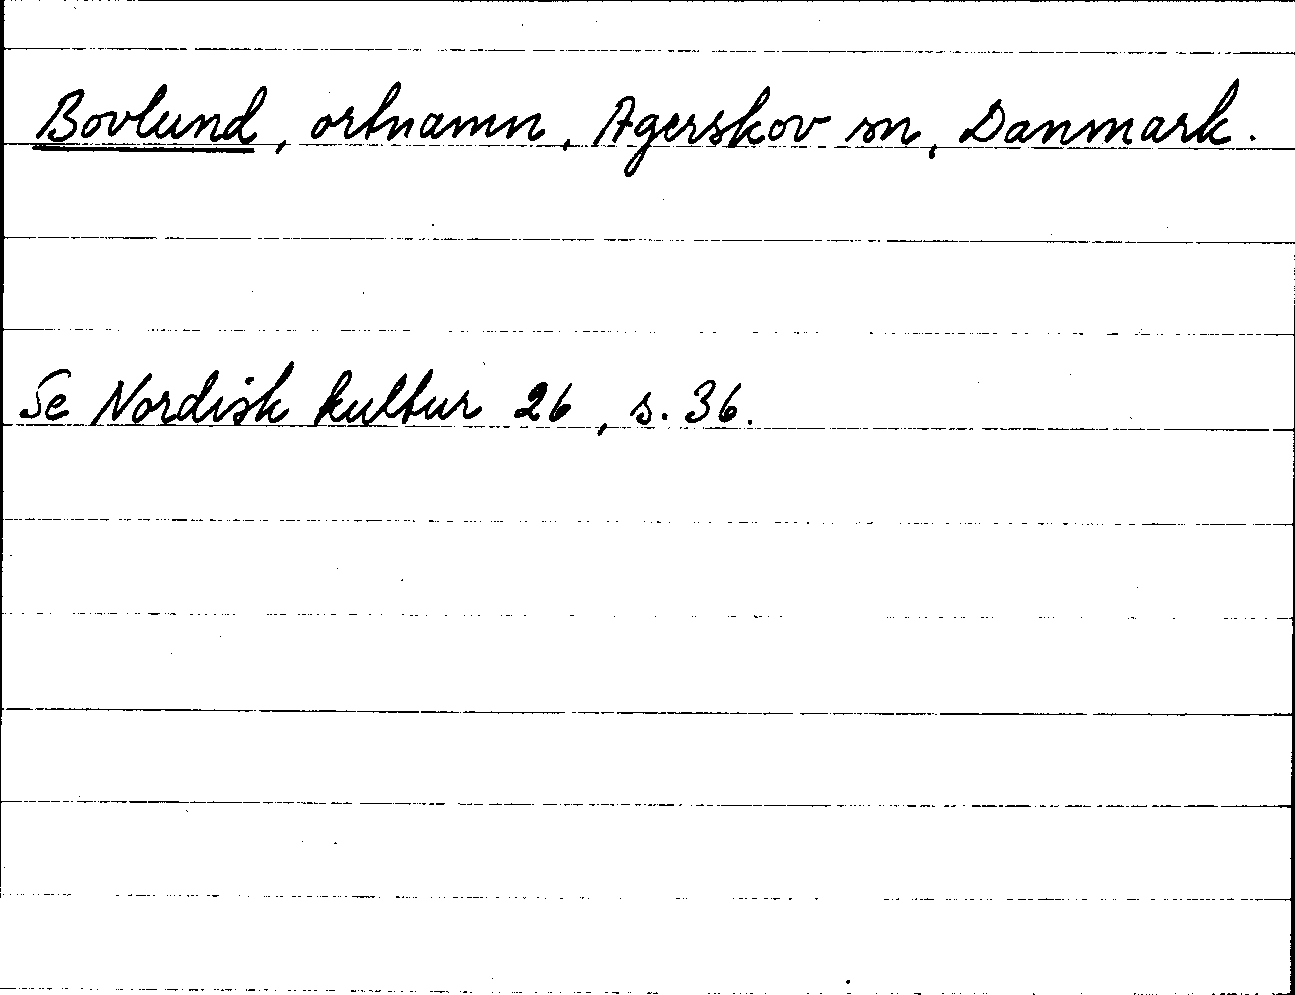 Bovlund, ortnamn, Agerskov sn, Danmark.
Se Nordisk kultur 26, s. 36.